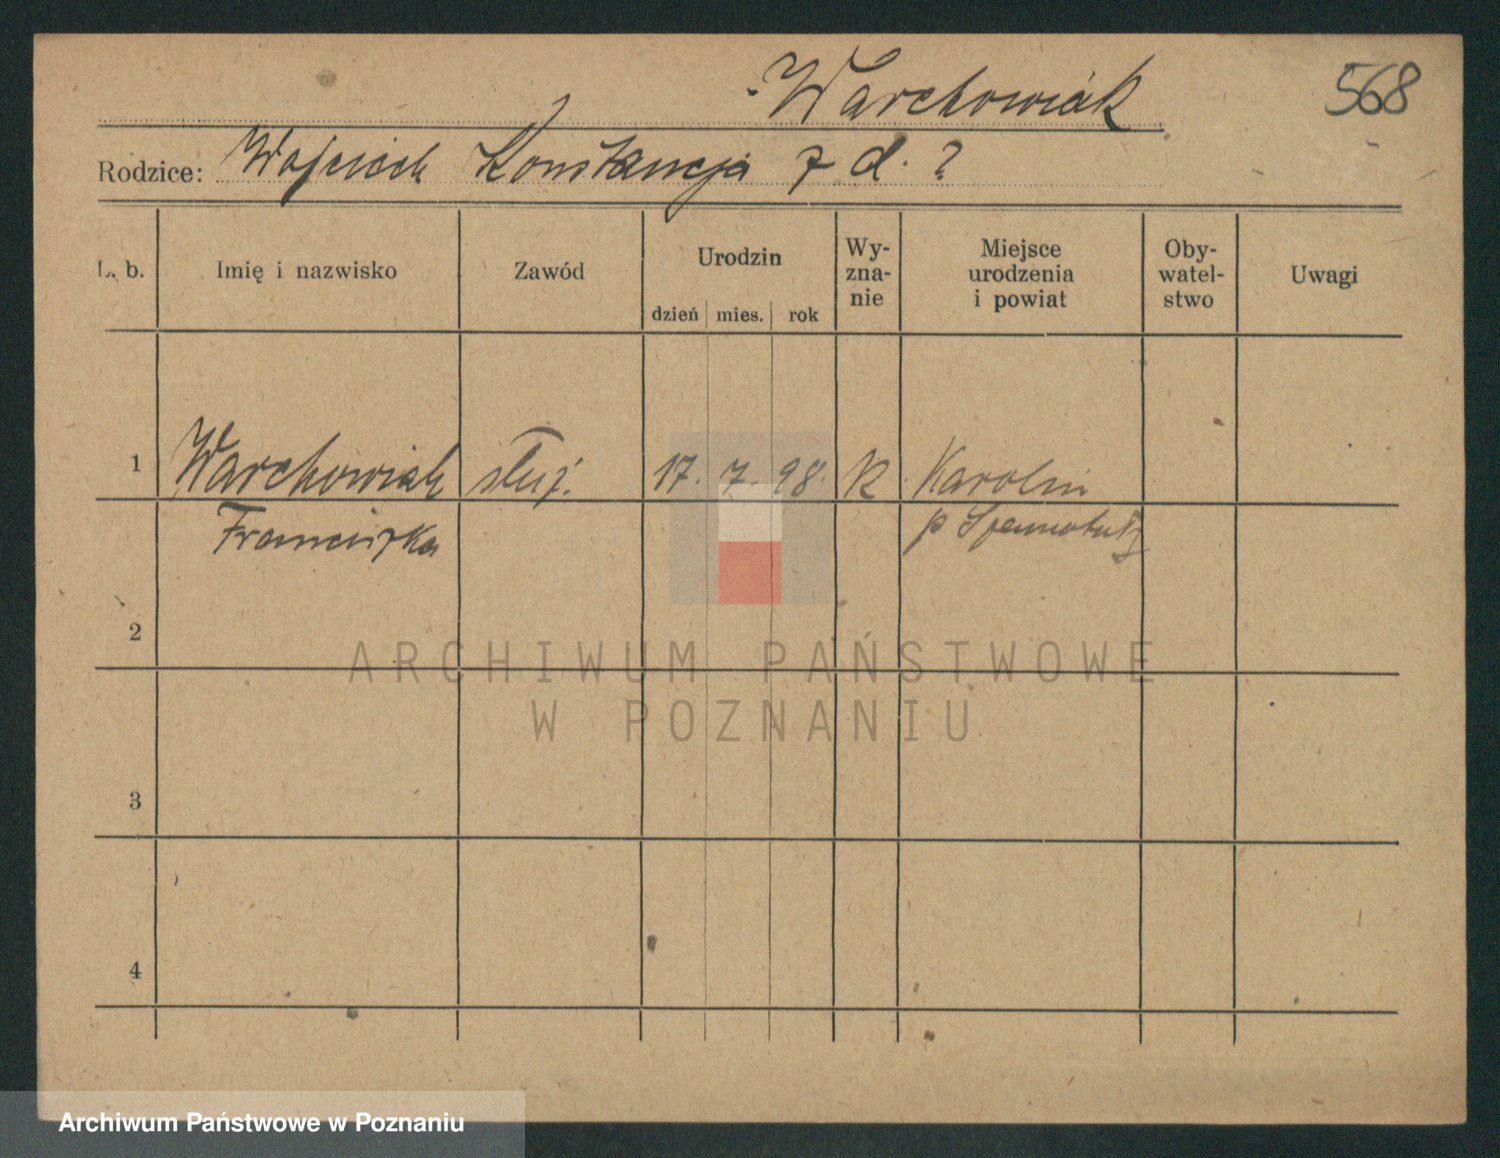 Warchowiak 568
Rodzice: Wojciech Konstancja z d. ?
L. b. Imię i nazwisko Zawód Urodzin dzień mies. rok Wy-zna-nie Miejsce urodzenia i powiat Oby-watel-stwo Uwagi
1 Warchowiak służ. 17. 7. 98. k Karolin
Franciszka p Szamotuły
2
ARCHIWUM PAŃSTWOWE
W POZNANIU
3
4
Archiwum Państwowe w Poznaniu